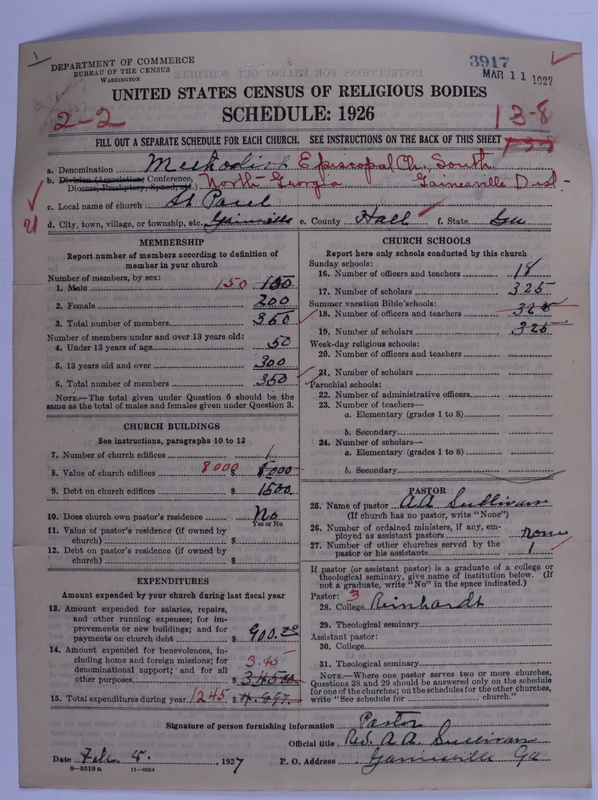 DEPARTMENT OF COMMERCE
BUREAU OF THE CENSUS
WASHINGTON
3917
MAR 11 1927
UNITED STATES CENSUS OF RELIGIOUS BODIES
SCHEDULE: 1926
2-2
13-8
FILL OUT A SEPARATE SCHEDULE FOR EACH CHURCH. SEE INSTRUCTIONS ON THE BACK OF THIS SHEET
a. Denomination Methodist Episcopal Ch. South
b. Division (Association), Conference, Diocese, Presbytery, Synod, of North Georgia Gainesville Dist.
c. Local name of church St Paul
d. City, town, village, or township, etc. Gainesville e. County Hall f. State Ga
MEMBERSHIP
Report number of members according to definition of
member in your church
Number of members, by sex:
1. Male 150 150
2. Female 200
3. Total number of members 350
Number of members under and over 13 years old:
4. Under 13 years of age 50
5. 13 years old and over 300
6. Total number of members 350
NOTE.—The total given under Question 6 should be the
same as the total of males and females given under Question 3.
CHURCH BUILDINGS
See instructions, paragraphs 10 to 12
7. Number of church edifices 1
8. Value of church edifices 8000 $
9. Debt on church edifices $ 1500
10. Does church own pastor's residence No
Yes or No
11. Value of pastor's residence (if owned by
church) $
12. Debt on pastor's residence (if owned by
church) $
EXPENDITURES
Amount expended by your church during last fiscal year
13. Amount expended for salaries, repairs,
and other running expenses; for im-
provements or new buildings; and for
payments on church debt $ 900.00
14. Amount expended for benevolences, in-
cluding home and foreign missions; for
denominational support; and for all
other purposes 345 $
15. Total expenditures during year 1245 $
CHURCH SCHOOLS
Report here only schools conducted by this church
Sunday schools:
16. Number of officers and teachers 18
17. Number of scholars 325
Summer vacation Bible schools:
18. Number of officers and teachers 325
19. Number of scholars 325
Week-day religious schools:
20. Number of officers and teachers
21. Number of scholars
Parochial schools:
22. Number of administrative officers
23. Number of teachers—
a. Elementary (grades 1 to 8)
b. Secondary
24. Number of scholars—
a. Elementary (grades 1 to 8)
b. Secondary
PASTOR
25. Name of pastor A.A. Sullivan
(If church has no pastor, write "None")
26. Number of ordained ministers, if any, em-
ployed as assistant pastors none
27. Number of other churches served by the
pastor or his assistants 1
If pastor (or assistant pastor) is a graduate of a college or
theological seminary, give name of institution below. (If
not a graduate, write "No" in the space indicated.)
Pastor: 3
28. College Reinhardt
29. Theological seminary
Assistant pastor:
30. College
31. Theological seminary
NOTE.—Where one pastor serves two or more churches,
Questions 28 and 29 should be answered only on the schedule
for one of the churches; on the schedules for the other churches,
write "See schedule for church."
Signature of person furnishing information Pastor
Official title Rev. A.A. Sullivan
Date Feb. 8. 1927 P. O. Address Gainesville Ga
8—5518 a 11—9054